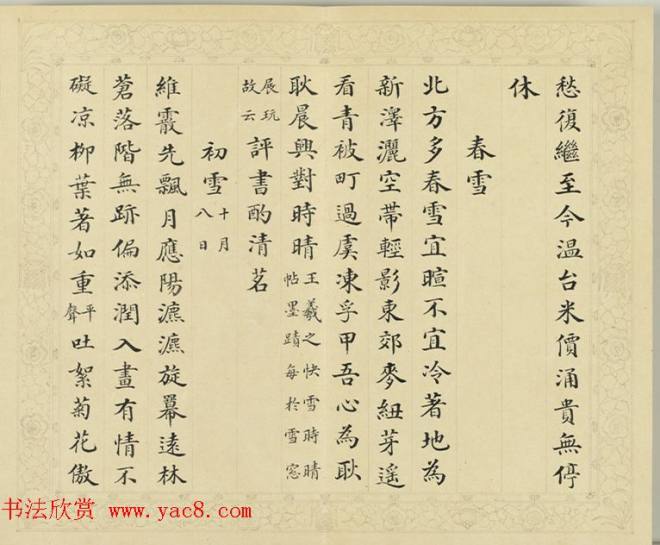 愁復繼至今温台米價涌貴無停
休
春雪
北方多春雪宜暄不宜冷著地為
新澤灑空帶輕影東郊麥紐芽遥
看青被町過虞凍孚甲吾心為耿
耿晨興對時晴王羲之快雪時晴帖墨蹟每於雪窓
展玩故云評書酌清茗
初雪十月八日
維霰先飄月應陽瀌瀌旋冪遠林
蒼落階無跡偏添潤入畫有情不
礙凉柳葉著如重平聲吐絮菊花傲
书法欣赏 www.yac8.com